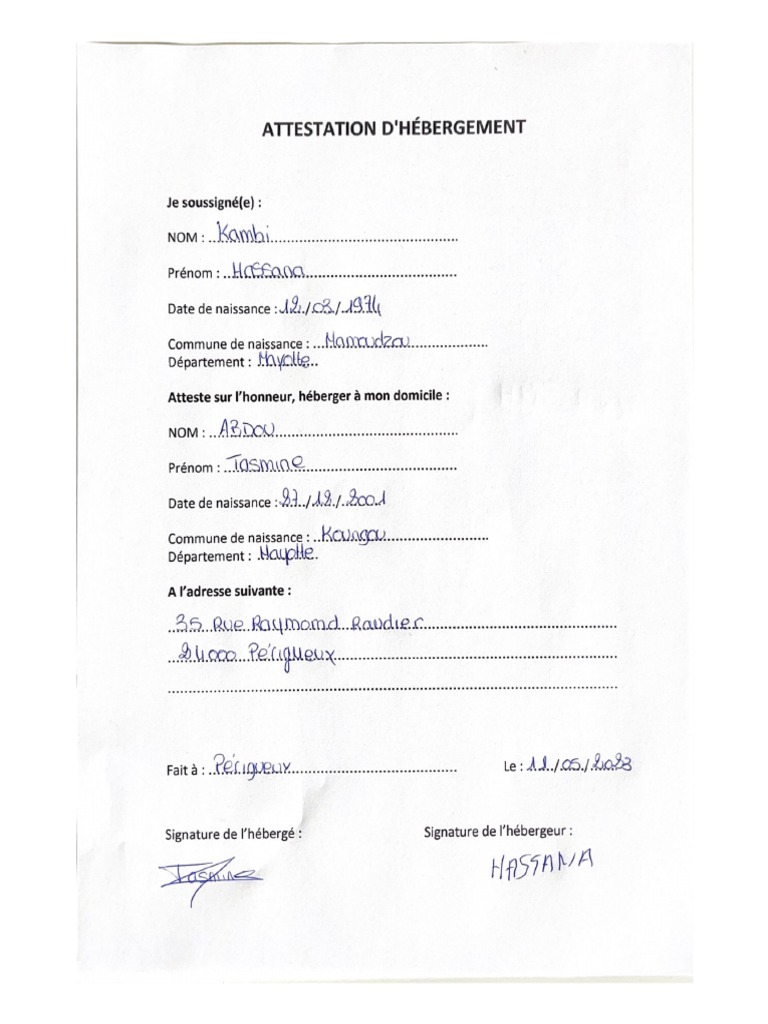 ATTESTATION D'HÉBERGEMENT
Je soussigné(e) :
NOM : Kambi
Prénom : Hassana
Date de naissance : 12/03/1974
Commune de naissance : Mamoudzou
Département : Mayotte
Atteste sur l'honneur, héberger à mon domicile :
NOM : ABDOU
Prénom : Tasmine
Date de naissance : 27/12/2001
Commune de naissance : Koungou
Département : Mayotte
A l'adresse suivante :
35 Rue Raymond Raudier
24000 Périgueux
Fait à : Périgueux Le : 11/05/2023
Signature de l'hébergé : Signature de l'hébergeur :
Tasmine HASSANA